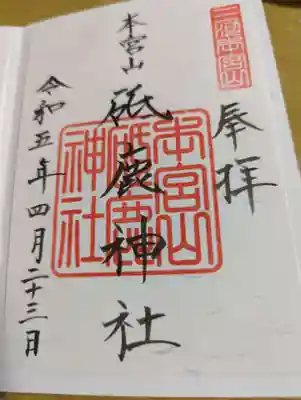 奉拝
本宮山
砥鹿神社
令和五年四月二十三日
本宮山
砥鹿
神社